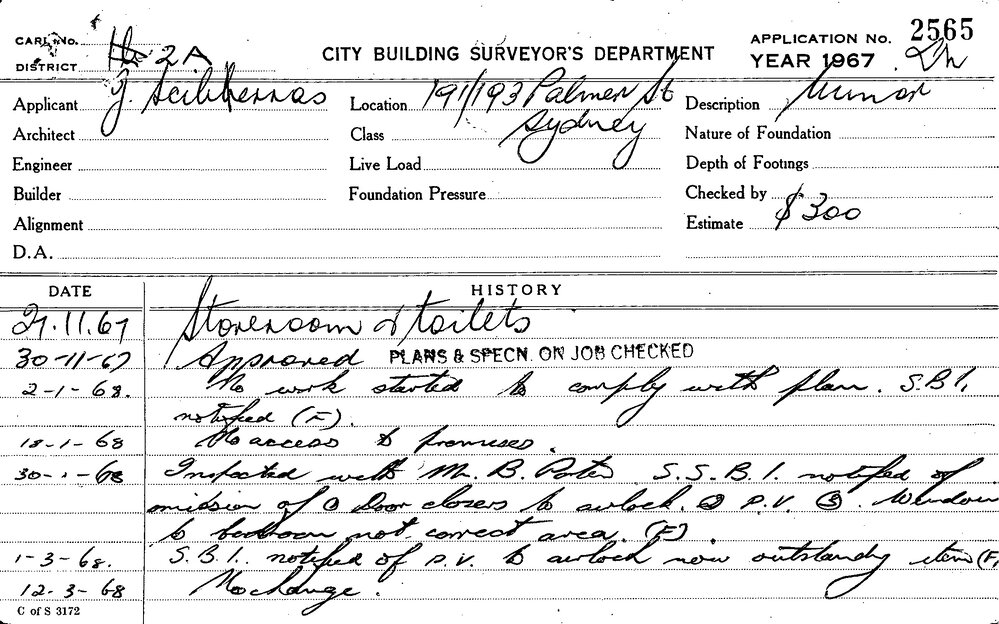 CARD No.
DISTRICT 2A
CITY BUILDING SURVEYOR'S DEPARTMENT
APPLICATION No. 2565
YEAR 1967
Applicant J. Sciberras
Location 191/193 Palmer St
Sydney
Description Minor
Architect
Class
Nature of Foundation
Engineer
Live Load
Depth of Footings
Builder
Foundation Pressure
Checked by
Alignment
Estimate $300
D.A.
DATE HISTORY
27.11.67 Storeroom & toilets
30-11-67 Approved PLANS & SPECN. ON JOB CHECKED
2-1-68. No work started to comply with plan. S.B.I.
notified (F).
18-1-68 No access to premises.
30-1-68 Inspected with Mr. B. S.S.B.I. notified of
omission of ① Door closers to airlock. ② P.V. ③. Window
to bedroom not correct area. (F).
1-3-68. S.B.I. notified of P.V. to airlock now outstanding item (F)
12-3-68 No change.
C of S 3172